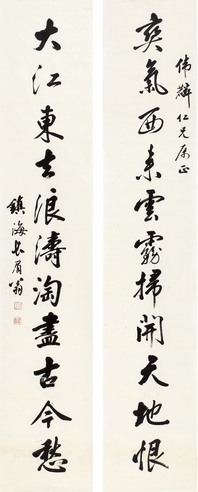 偉麟仁兄屬正
爽氣西來雲霧掃開天地恨
大江東去浪濤淘盡古今愁
鎮海長眉翁